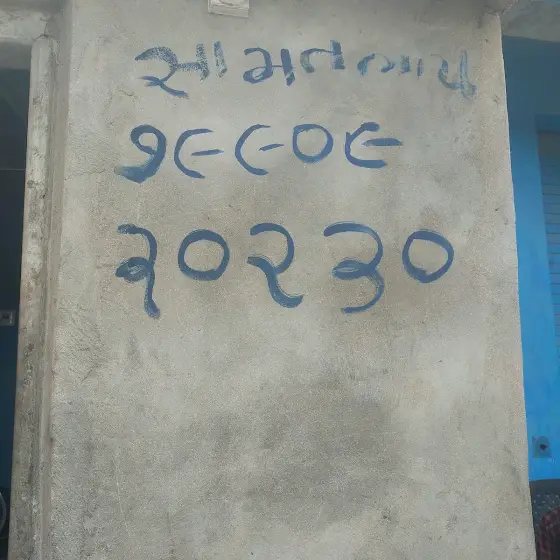 સામતભાય
૭૯૯૦૯
૩૦૨૩૦